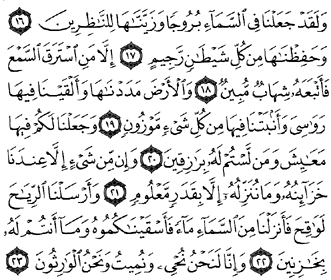 وَلَقَدْ جَعَلْنَا فِى ٱلسَّمَآءِ بُرُوجًا وَزَيَّنَّـٰهَا لِلنَّـٰظِرِينَ ۝١٦
وَحَفِظْنَـٰهَا مِن كُلِّ شَيْطَـٰنٍ رَّجِيمٍ ۝١٧ إِلَّا مَنِ ٱسْتَرَقَ ٱلسَّمْعَ
فَأَتْبَعَهُۥ شِهَابٌ مُّبِينٌ ۝١٨ وَٱلْأَرْضَ مَدَدْنَـٰهَا وَأَلْقَيْنَا فِيهَا
رَوَٰسِىَ وَأَنۢبَتْنَا فِيهَا مِن كُلِّ شَىْءٍ مَّوْزُونٍ ۝١٩ وَجَعَلْنَا لَكُمْ فِيهَا
مَعَـٰيِشَ وَمَن لَّسْتُمْ لَهُۥ بِرَٰزِقِينَ ۝٢٠ وَإِن مِّن شَىْءٍ إِلَّا عِندَنَا
خَزَآئِنُهُۥ وَمَا نُنَزِّلُهُۥٓ إِلَّا بِقَدَرٍ مَّعْلُومٍ ۝٢١ وَأَرْسَلْنَا ٱلرِّيَـٰحَ
لَوَٰقِحَ فَأَنزَلْنَا مِنَ ٱلسَّمَآءِ مَآءً فَأَسْقَيْنَـٰكُمُوهُ وَمَآ أَنتُمْ لَهُۥ
بِخَـٰزِنِينَ ۝٢٢ وَإِنَّا لَنَحْنُ نُحْىِۦ وَنُمِيتُ وَنَحْنُ ٱلْوَٰرِثُونَ ۝٢٣